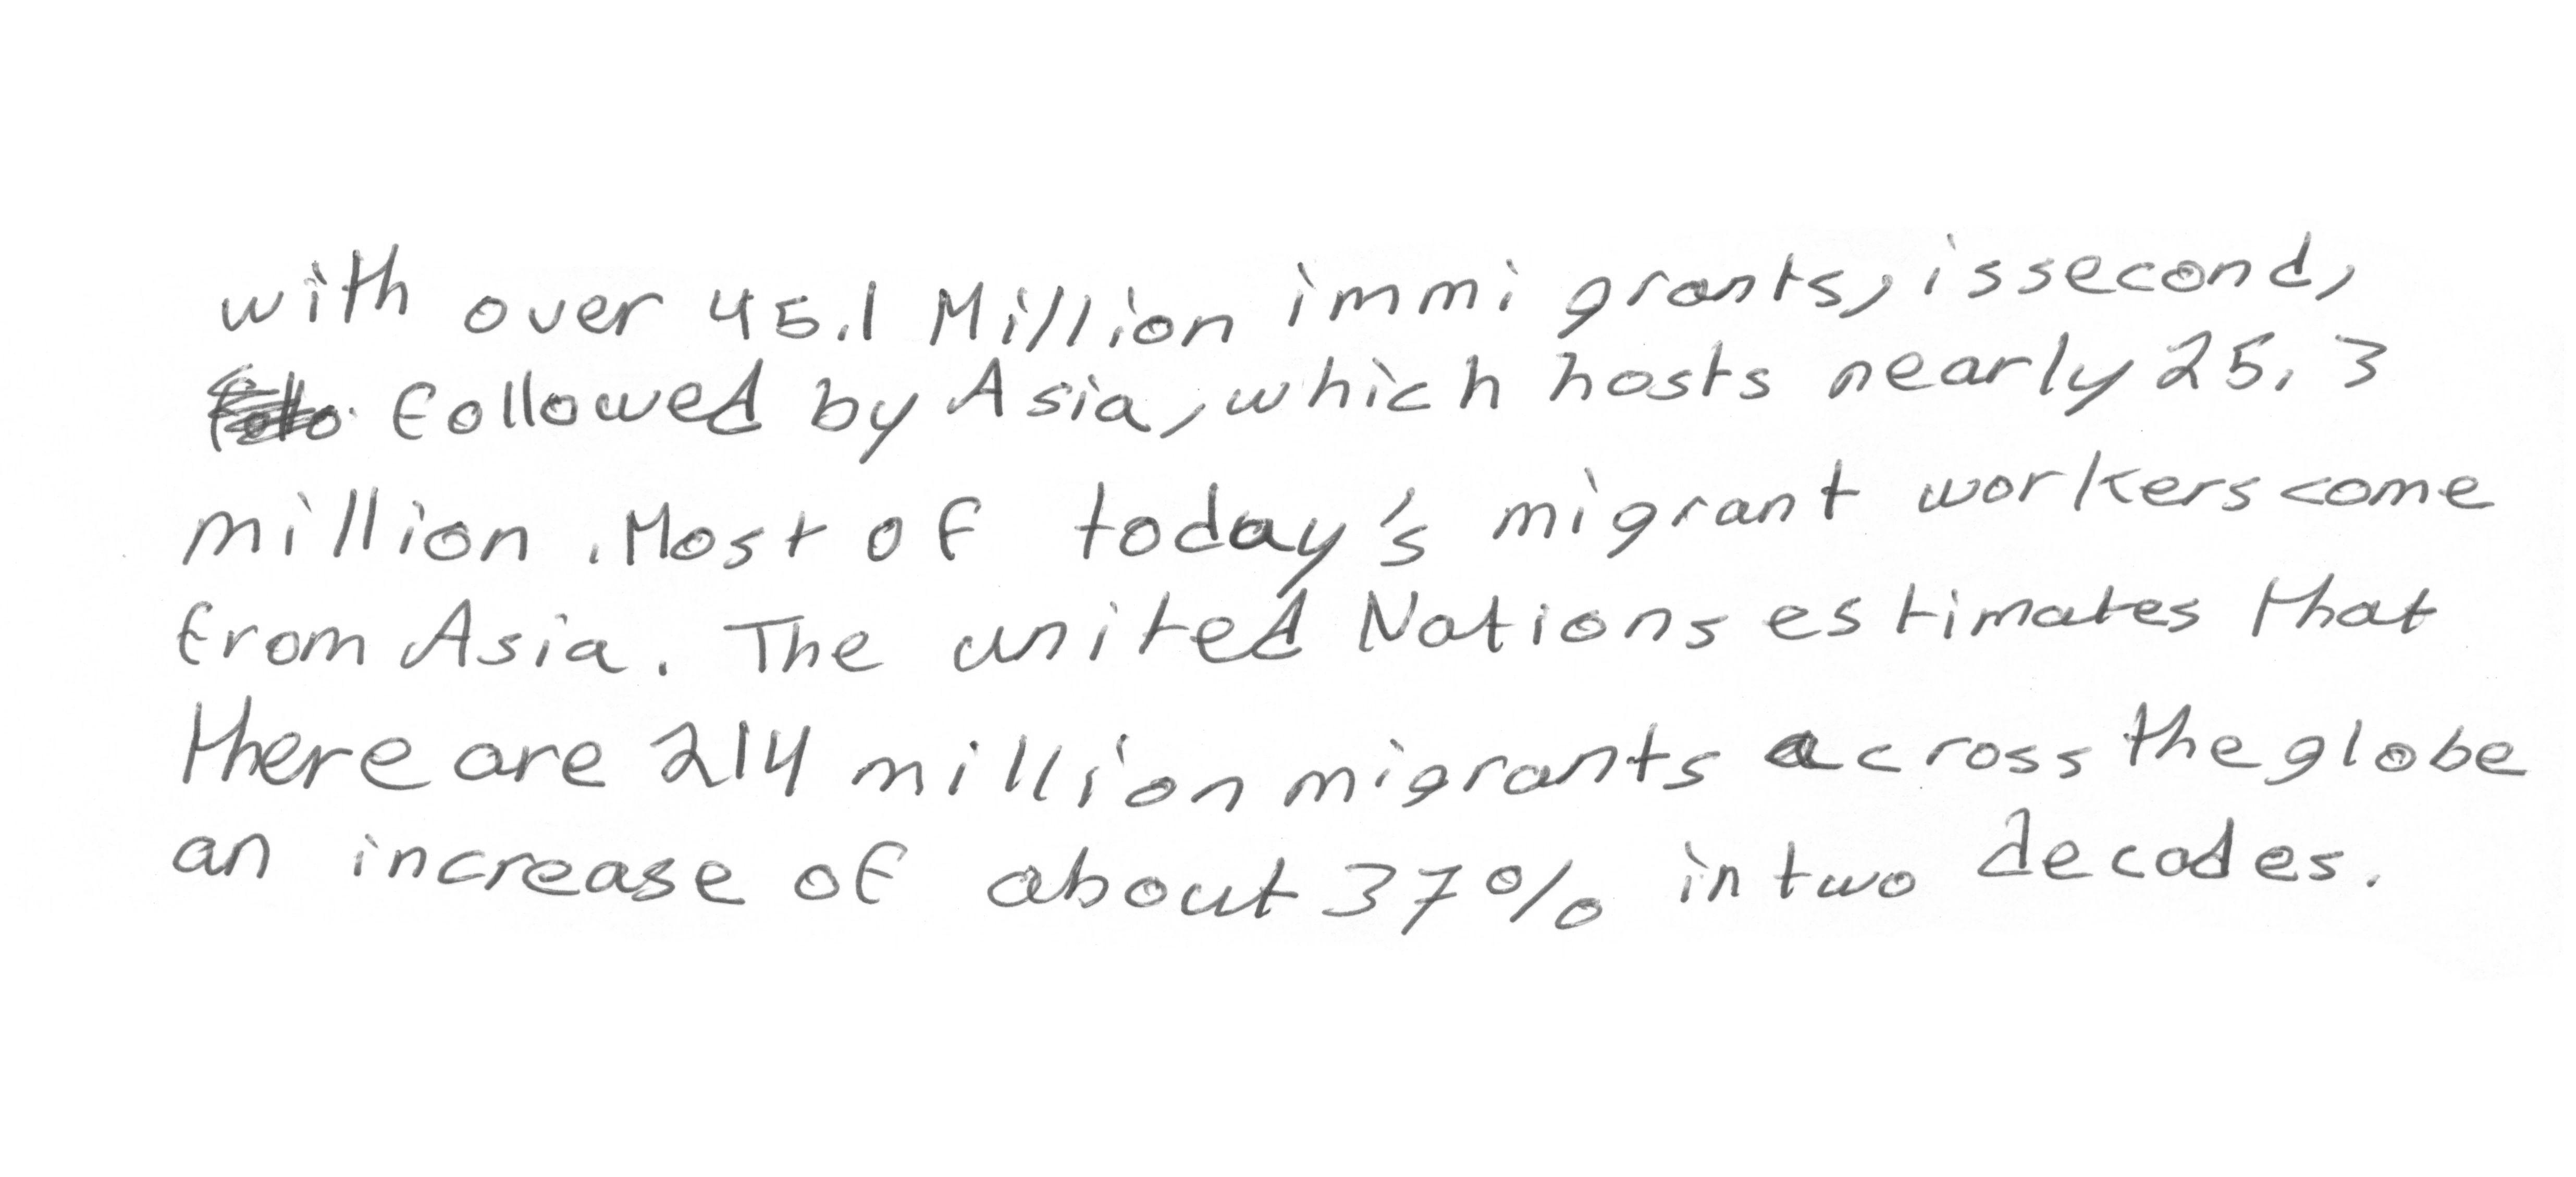 with over 45.1 Million immigrants, is second,
followed by Asia, which hosts nearly 25.3
million. Most of today's migrant workers come
from Asia. The united Nations estimates that
there are 214 million migrants across the globe
an increase of about 37% in two decades.